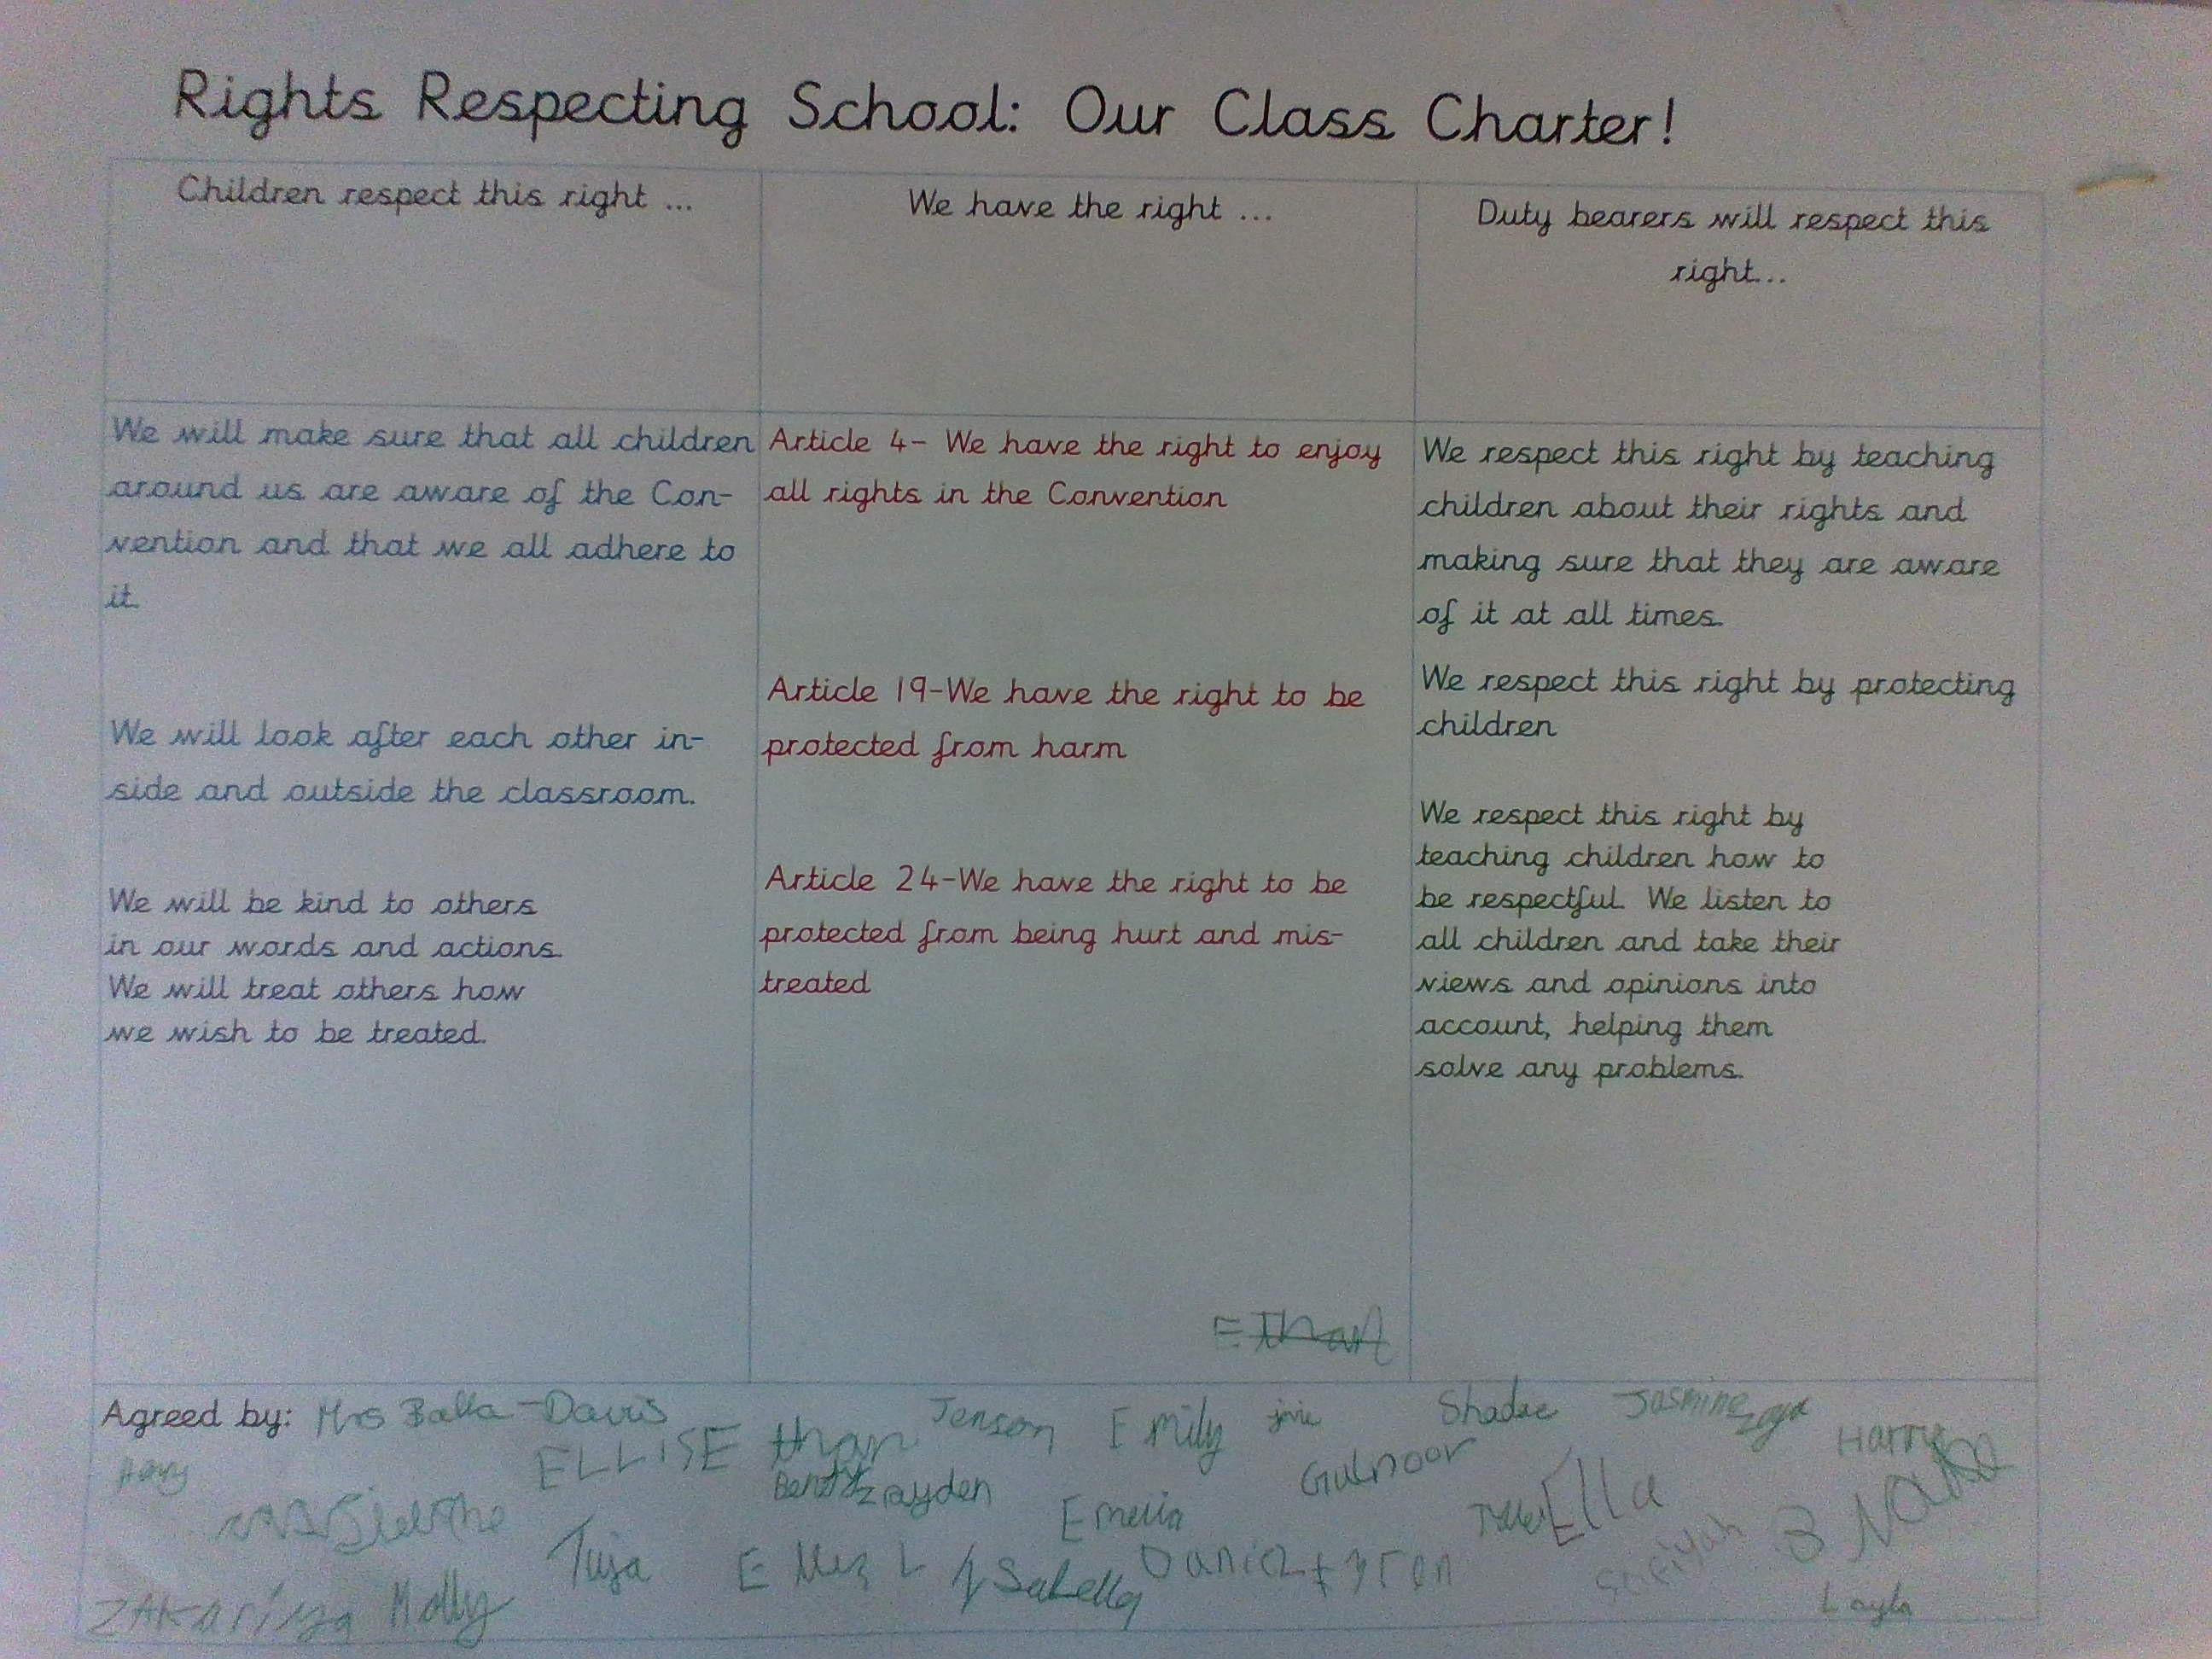 Rights Respecting School: Our Class Charter!
Children respect this right ...
We have the right ...
Duty bearers will respect this
right...
We will make sure that all children
around us are aware of the Con-
vention and that we all adhere to
it.
We will look after each other in-
side and outside the classroom.
We will be kind to others
in our words and actions.
We will treat others how
we wish to be treated.
Article 4- We have the right to enjoy
all rights in the Convention
Article 19-We have the right to be
protected from harm
Article 24-We have the right to be
protected from being hurt and mis-
treated
We respect this right by teaching
children about their rights and
making sure that they are aware
of it at all times.
We respect this right by protecting
children
We respect this right by
teaching children how to
be respectful. We listen to
all children and take their
views and opinions into
account, helping them
solve any problems.
Ethan
Agreed by: Mrs Balla-Davis
Jenson Emily Shadae Jasmine Harry
ELLISE Gulnoor
Zayden Emelia Ella
Tuja Isabella
ZAKariya Molly Layla